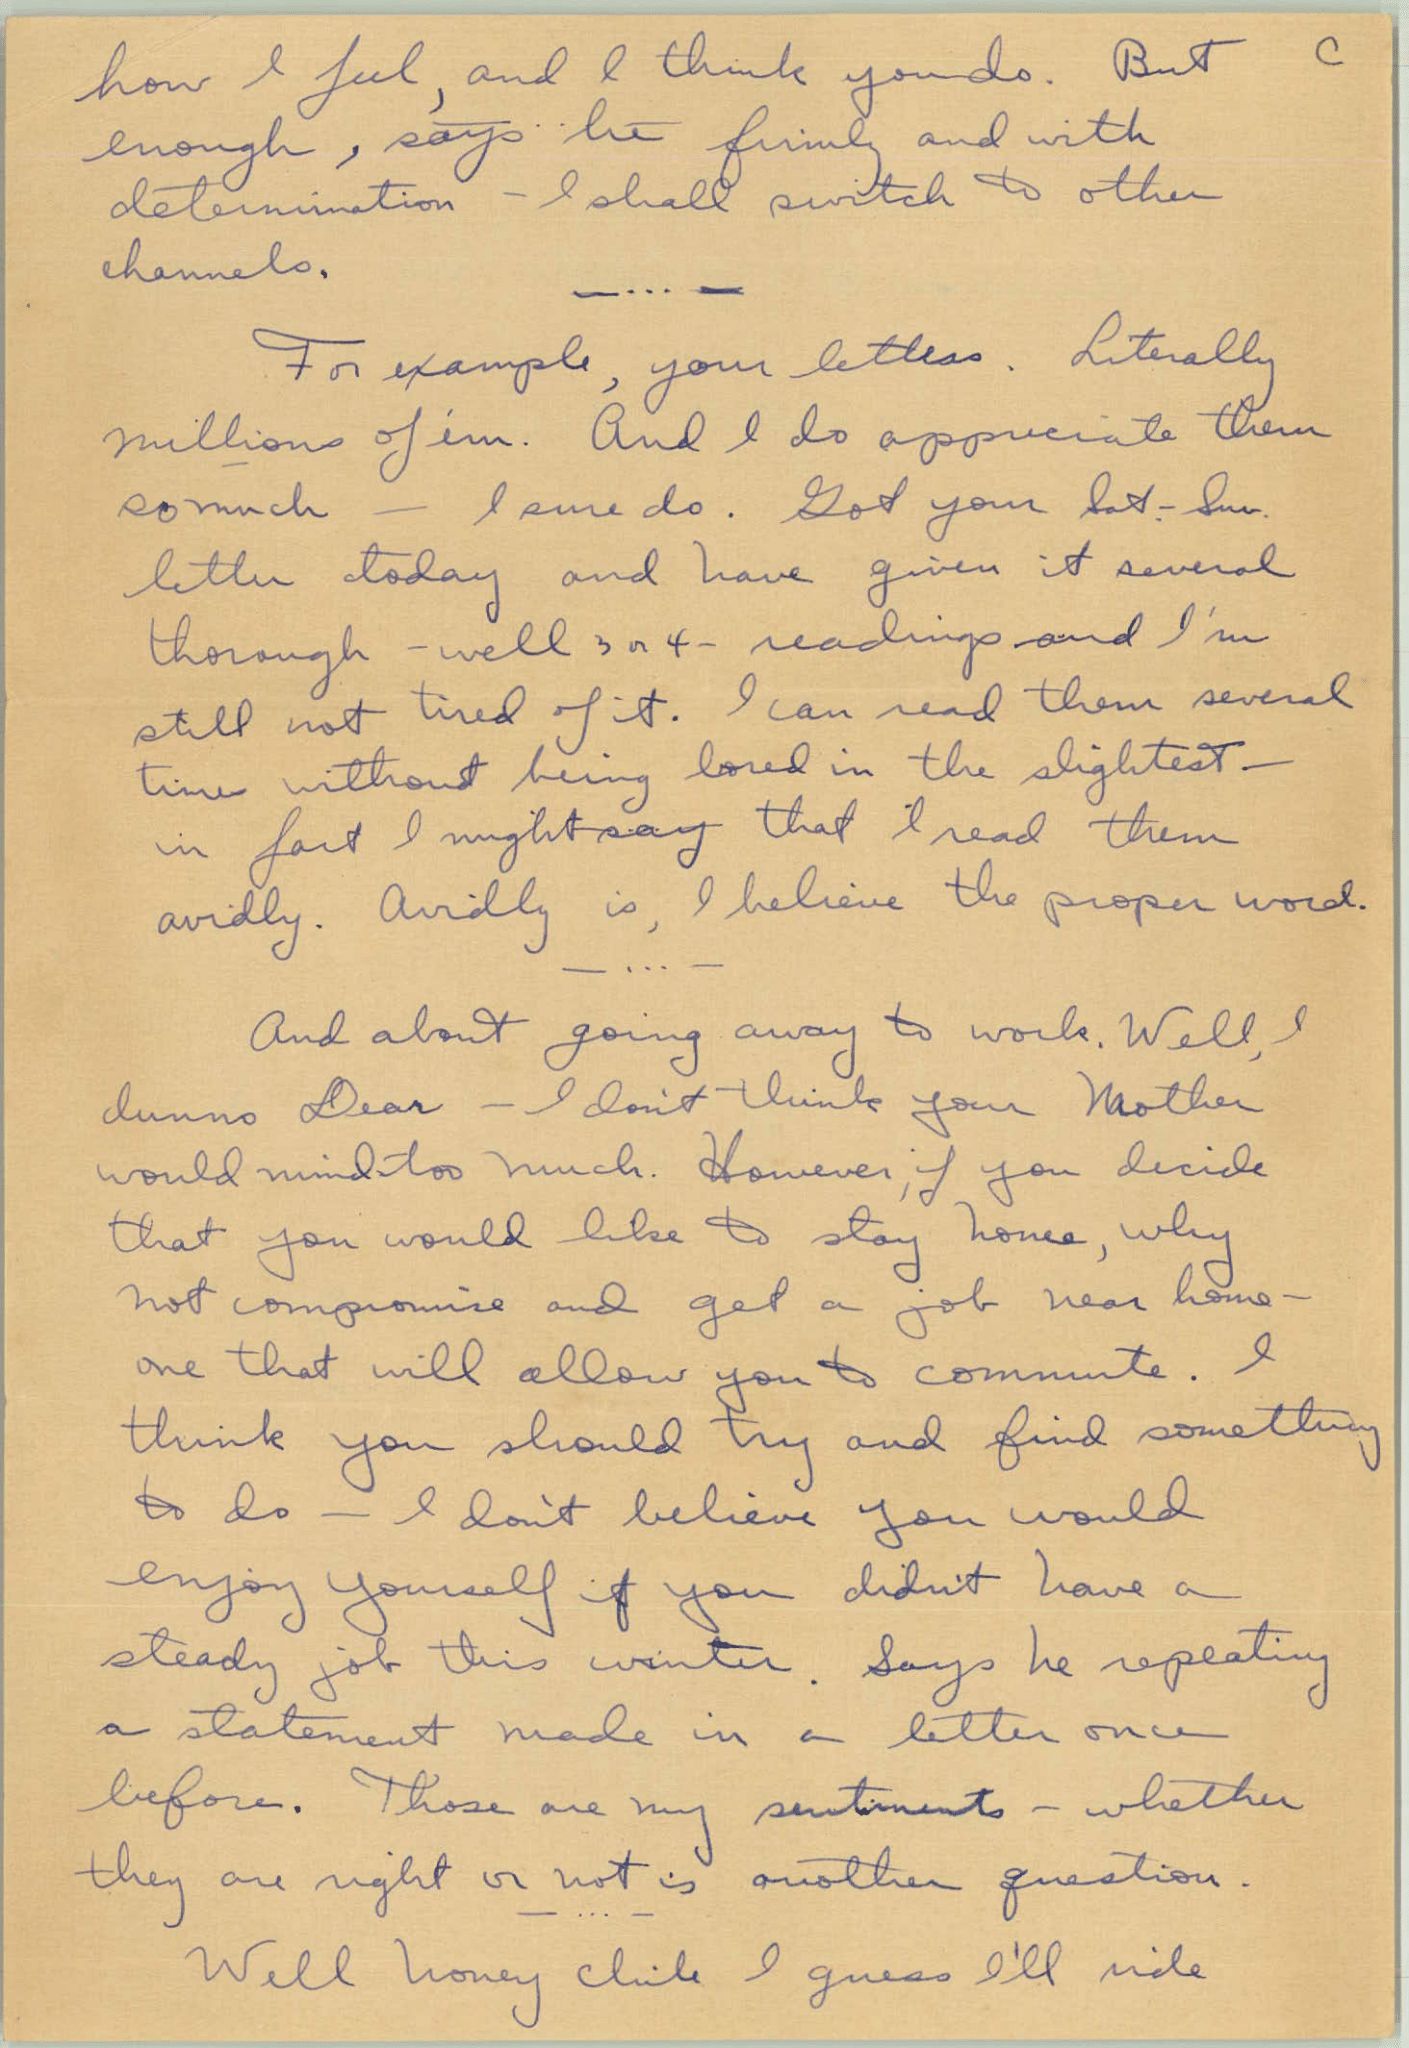 C
how I feel, and I think you do. But
enough, says he firmly and with
determination - I shall switch to other
channels.
— ... —
For example, your letters. Literally
millions of 'em. And I do appreciate them
so much — I sure do. Got your Sat.-Sun.
letter today and have given it several
thorough - well 3 or 4 - readings and I'm
still not tired of it. I can read them several
times without being bored in the slightest —
in fact I might say that I read them
avidly. Avidly is, I believe the proper word.
— ... —
And about going away to work. Well, I
dunno Dear - I don't think your Mother
would mind too much. However, if you decide
that you would like to stay home, why
not compromise and get a job near home -
one that will allow you to commute. I
think you should try and find something
to do — I don't believe you would
enjoy yourself if you didn't have a
steady job this winter. Says he repeating
a statement made in a letter once
before. Those are my sentiments - whether
they are right or not is another question.
— ... —
Well honey chile I guess I'll ride